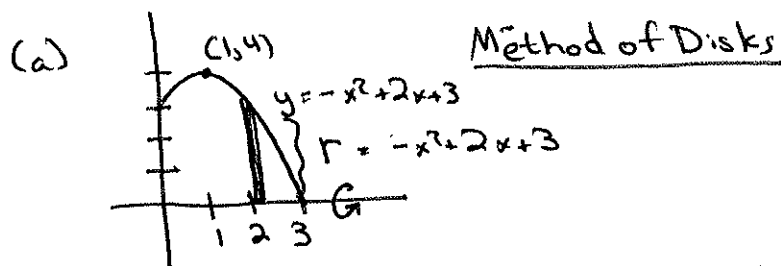 (a)
(1,4)
Method of Disks
y = -x²+2x+3
r = -x²+2x+3
1 2 3